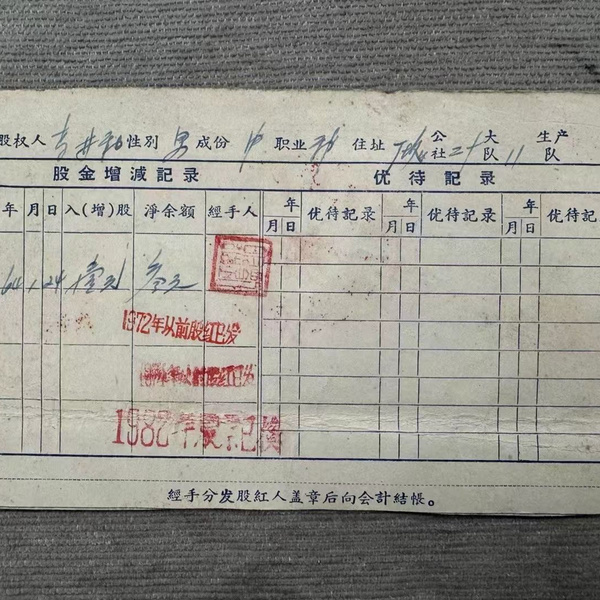 股权人 吉井和 性别 男 成份 中 职业 住址 公社 二十 大队 11 生产队
股金增减記录 优待記录
年 月 日 入(增)股 淨余額 經手人 年 月 日 优待記录 年 月 日 优待記录 年 月 日 优待記
64 1 24 壹元 叁元
1972年以前股红已发
年以前股红已发
1982年股
經手分发股紅人盖章后向会計結帳。